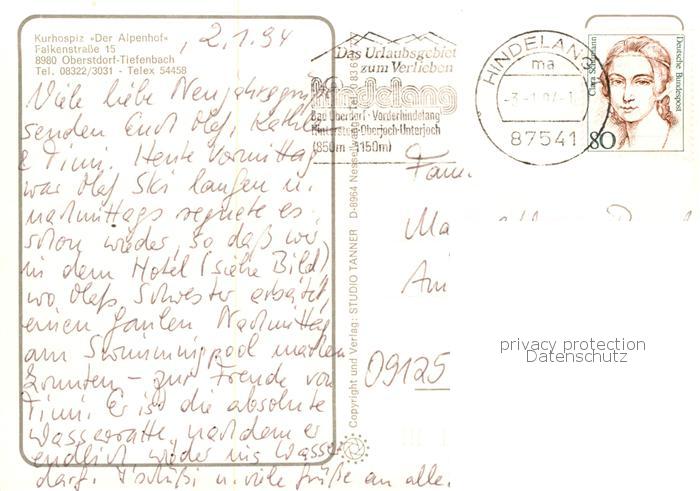 Kurhospiz »Der Alpenhof«
Falkenstraße 15
8980 Oberstdorf-Tiefenbach
Tel. 08322/3031 - Telex 54458
, 2.1.94
Viele liebe Neujahrsgrüße
senden Euch Olaf, Kathle
& Timi. Heute Vormittag
war Olaf Ski laufen u.
nachmittags regnete es
schon wieder, so daß wir
in dem Hotel (siehe Bild),
wo Olafs Schwester arbeitet,
einen faulen Nachmittag
am Swimmingpool machen
konnten - zur Freude von
Timi. Er ist die absolute
Wasserratte, nachdem er
endlich wieder ins Wasser
darf. Tschüßi u. viele Grüße an alle.
Das Urlaubsgebiet
zum Verlieben
Hindelang
Bad Oberdorf · Vorderhindelang
Hinterstein · Oberjoch · Unterjoch
(850m - 1150m)
HINDELANG
ma
87541
Clara Schumann
Deutsche Bundespost
80
Copyright und Verlag: STUDIO TANNER D-8964 Nesselwang
Fam.
Ma
Am
09125
privacy protection
Datenschutz